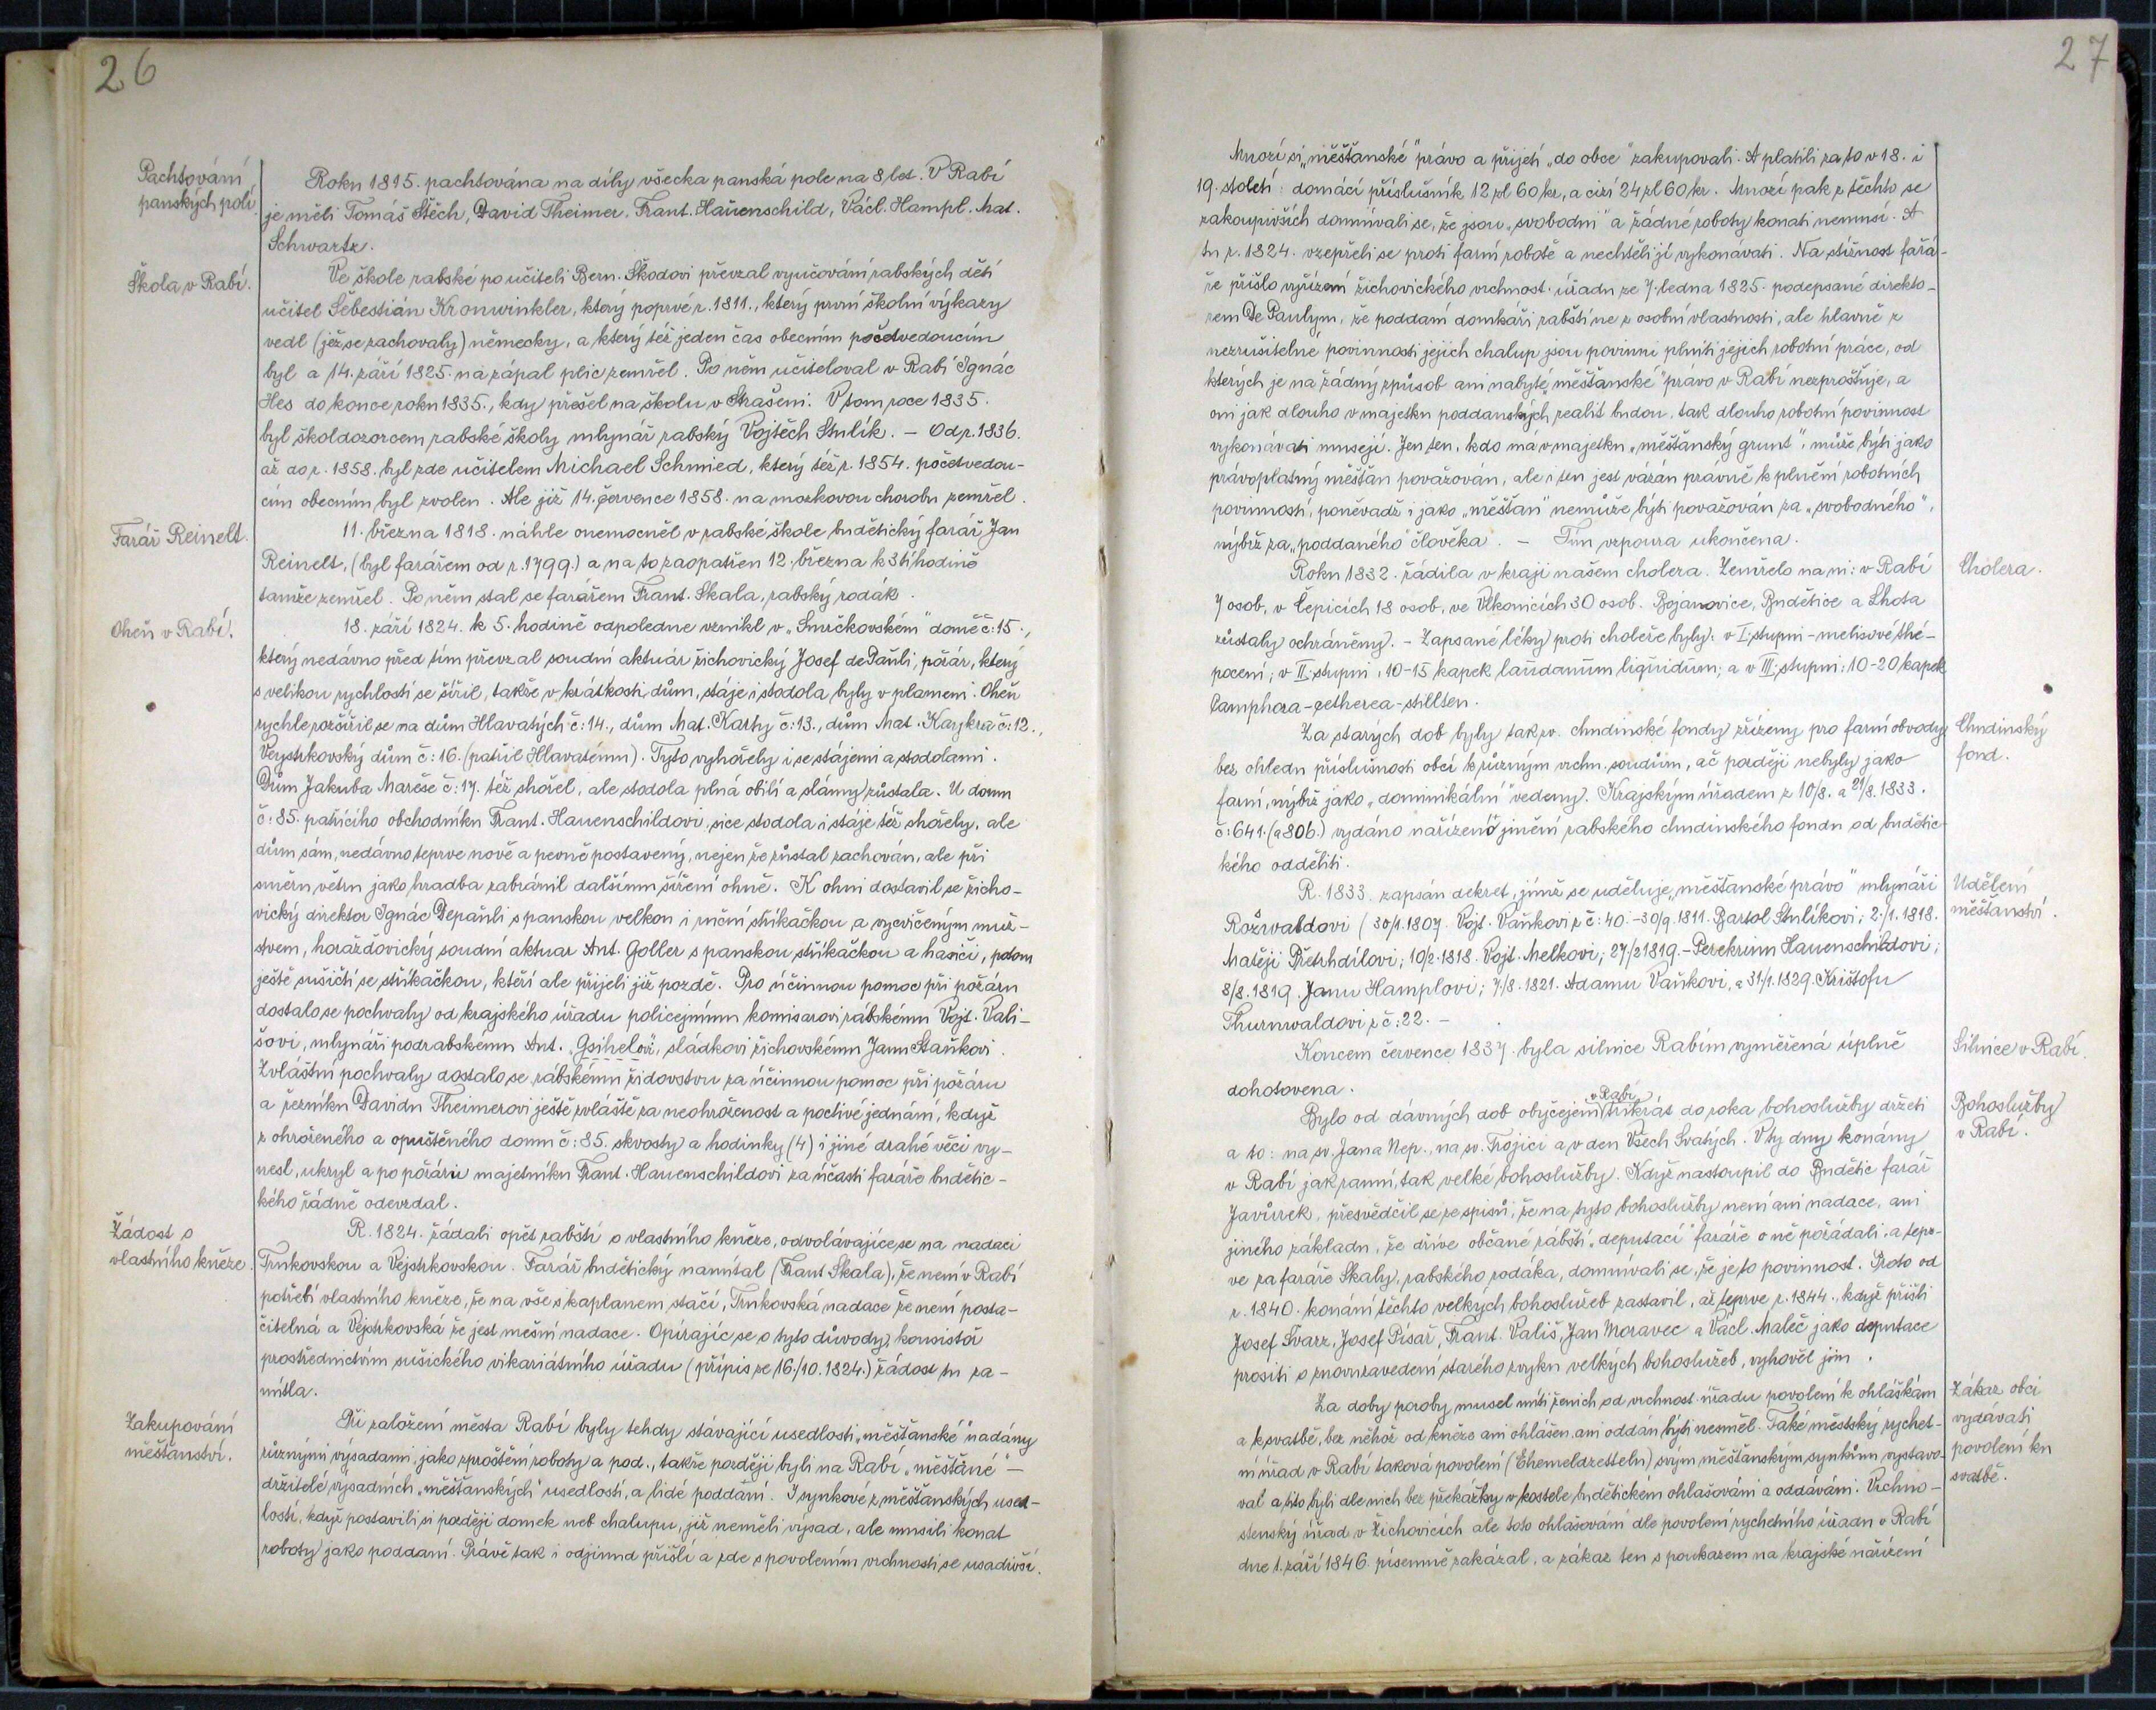 26
Pachtování
panských polí
Roku 1815. pachtována na díly všecka panská pole na 8 let. V Rabí
je měli Tomáš Štěch, David Theimer, Frant. Hauenschild, Václ. Hampl, Mat.
Schwartz.
Škola v Rabí.
Ve škole rabské po učiteli Bern. Škodovi převzal vyučování rabských dětí
učitel Šebestián Kronwinkler, který poprvé r. 1811., který první školní výkazy
vedl (jež se zachovaly) německy, a který též jeden čas obecním početvedoucím
byl a 14. září 1825. na zápal plic zemřel. Po něm učiteloval v Rabí Ignác
Hes do konce roku 1835., kdy přešel na školu v Strašeni. V tom roce 1835.
byl školdozorcem rabské školy mlynář rabský Vojtěch Stulík. – Od r. 1836.
až do r. 1858. byl zde učitelem Michael Schmied, který též r. 1854. početvedou-
cím obecním byl zvolen. Ale již 14. července 1858. na mozkovou chorobu zemřel.
Farář Reinelt.
11. března 1818. náhle onemocněl v rabské škole budětický farář Jan
Reinelt, (byl farářem od r. 1799.) a na to zaopatřen 12. března k 3tí hodině
tamže zemřel. Po něm stal se farářem Frant. Skala, rabský rodák.
Oheň v Rabí.
18. září 1824. k 5. hodině odpoledne vznikl v „Smrčkovském" domě č: 15.,
který nedávno před tím převzal soudní aktuár žichovický Josef de Pauli, požár, který
s velikou rychlostí se šířil, takže v krátkosti dům, stáje i stodola byly v plameni. Oheň
rychle rozšířil se na dům Hlavatých č: 14., dům Mat. Karhy č: 13., dům Mat. Kaykra č: 12.,
Veystrkovský dům č: 16. (patřil Hlavatému). Tyto vyhořely i se stájemi a stodolami.
Dům Jakuba Mareše č: 17. též shořel, ale stodola plná obilí a slámy zůstala. U domu
č: 85. patřícího obchodníku Frant. Hauenschildovi, sice stodola i stáje též shořely, ale
dům sám, nedávno teprve nově a pevně postavený, nejen že zůstal zachován, ale při
směru větru jako hradba zabránil dalšímu šíření ohně. K ohni dostavil se žicho-
vický direktor Ignác Depauli s panskou velkou i ruční stříkačkou a vycvičeným muž-
stvem, horažďovický soudní aktuar Ant. Goller s panskou stříkačkou a hasiči, potom
ještě sušičtí se stříkačkou, kteří ale přijeli již pozdě. Pro účinnou pomoc při požáru
dostalo se pochvaly od krajského úřadu policejnímu komisarovi rabskému Vojt. Vali-
šovi, mlynáři podrabskému Ant. Gsihelovi, sládkovi žichovskému Janu Staňkovi.
Zvláštní pochvaly dostalo se rábskému židovstvu za účinnou pomoc při požáru
a řezníku Davidu Theimerovi ještě zvláště za neohroženost a poctivé jednání, když
z ohroženého a opuštěného domu č: 85. skvosty a hodinky (4) i jiné drahé věci vy-
nesl, ukryl a po požáru majetníku Frant. Hauenschildovi za účasti faráře budětic-
kého řádně odevzdal.
Žádost o
vlastního kněze.
R. 1824. žádali opět rabští o vlastního kněze, odvolávajíce se na nadaci
Trnkovskou a Vejstrkovskou. Farář budětický namítal (Frant Skala), že není v Rabí
potřebí vlastního kněze, že na vše s kaplanem stačí, Trnkovská nadace že není posta-
čitelná a Vejstrkovská že jest mešní nadace. Opírajíc se o tyto důvody, konsistoř
prostřednictvím sušického vikariátního úřadu (přípis ze 16./10. 1824.) žádost tu za-
mítla.
Zakupování
měšťanství.
Při založení města Rabí byly tehdy stávající usedlosti „měšťanské" nadány
různými výsadami, jako zproštění roboty a pod., takže později byli na Rabí „měšťané" –
držitelé výsadních „měšťanských" usedlostí, a lidé poddaní. I synkové z měšťanských used-
lostí, když postavili si později domek neb chalupu, již neměli výsad, ale musili konat
roboty jako poddaní. Právě tak i odjinud přišlí a zde s povolením vrchnosti se usadivší.
27
Mnozí si „měšťanské" právo a přijetí „do obce" zakupovali. A platili za to v 18. i
19. století: domácí příslušník 12 zl 60 kr, a cizí 24 zl 60 kr. Mnozí pak z těchto se
zakoupivších domnívali se, že jsou „svobodni" a žádné roboty konati nemusí. A
tu r. 1824. vzepřeli se proti farní robotě a nechtěli jí vykonávati. Na stížnost fará-
ře přišlo vyřízení žichovického vrchnost. úřadu ze 7. ledna 1825. podepsané direkto-
rem De Paulym, že poddaní domkáři rabští ne z osobní vlastnosti, ale hlavně z
nezrušitelné povinnosti jejich chalup jsou povinni plniti jejich robotní práce, od
kterých je na žádný způsob ani nabyté „měšťanské" právo v Rabí nezprošťuje, a
oni jak dlouho v majetku poddanských realit budou, tak dlouho robotní povinnost
vykonávati musejí. Jen ten, kdo má v majetku „měšťanský grunt", může býti jako
právoplatný měšťan považován, ale i ten jest vázán právně k plnění robotních
povinností, poněvadž i jako „měšťan" nemůže býti považován za „svobodného",
nýbrž za „poddaného člověka". – Tím vzpoura ukončena.
Cholera.
Roku 1832. řádila v kraji našem cholera. Zemřelo na ni: v Rabí
7 osob, v Čepicích 18 osob, ve Vlkonicích 30 osob. Bojanovice, Budětice a Lhota
zůstaly ochráněny. – Zapsané léky proti choleře byly: v I. stupni – melisové thé –
pocení; v II. stupni: 10–15 kapek laudanum liquidum; a v III. stupni: 10–20 kapek
Camphora-aetherea-stillten.
Chudinský
fond.
Za starých dob byly tak zv. chudinské fondy zřízeny pro farní obvody
bez ohledu příslušnosti obcí k různým vrchn. soudům, ač později nebyly jako
farní, nýbrž jako „dominikální" vedeny. Krajským úřadem z 10/8. a 21/8. 1833.
č: 641. (a 806.) vydáno nařízení jmění rabského chudinského fondu od budětic-
kého odděliti.
Udělení
měšťanství.
R. 1833. zapsán dekret, jímž se uděluje „měšťanské právo" mlynáři
Rožwaldovi (30/1. 1807. Vojt. Vaňkovi z č: 40. – 30/9. 1811. Bartol Stulíkovi; 2./1. 1818.
Matěji Přetrhdílovi; 10/2. 1818. Vojt. Melkovi; 27/2 1819. – Perekrinu Hauenschildovi;
8/8. 1819. Janu Hamplovi; 7/8. 1821. Adamu Vaňkovi, a 31/1. 1829. Krištofu
Thurnwaldovi z č: 22. –
Silnice v Rabí.
Koncem července 1837. byla silnice Rabím vyměřená úplně
dohotovena.
Bohoslužby
v Rabí.
Bylo od dávných dob obyčejem v Rabí třikrát do roka bohoslužby držeti
a to: na sv. Jana Nep., na sv. Trojici a v den Všech Svatých. V ty dny konány
v Rabí jak ranní, tak velké bohoslužby. Když nastoupil do Budětic farář
Javůrek, přesvědčil se ze spisů, že na tyto bohoslužby není ani nadace, ani
jiného základu, že dříve občané rábští „deputací" faráře o ně požádali, a tepr-
ve za faráře Skaly, rabského rodáka, domnívali se, že je to povinnost. Proto od
r. 1840. konání těchto velkých bohoslužeb zastavil, až teprve r. 1844., když přišli
Josef Švarz, Josef Písař, Frant. Vališ, Jan Moravec a Václ. Maleč jako deputace
prositi o znovuzavedení starého zvyku velkých bohoslužeb, vyhověl jim.
Zákaz obci
vydávati
povolení ku
svatbě.
Za doby poroby musel míti ženich od vrchnost. úřadu povolení k ohláškám
a k svatbě, bez něhož od kněze ani ohlášen, ani oddán býti nesměl. Také městský rychet-
ní úřad v Rabí taková povolení (Ehemeldzetteln) svým měšťanským synkům vystavo-
val a tito byli dle nich bez překážky v kostele budětickém ohlašováni a oddáváni. Vrchno-
stenský úřad v Žichovicích ale toto ohlašování dle povolení rychetního úřadu v Rabí
dne 1. září 1846. písemně zakázal, a zákaz ten s poukazem na krajské nařízení